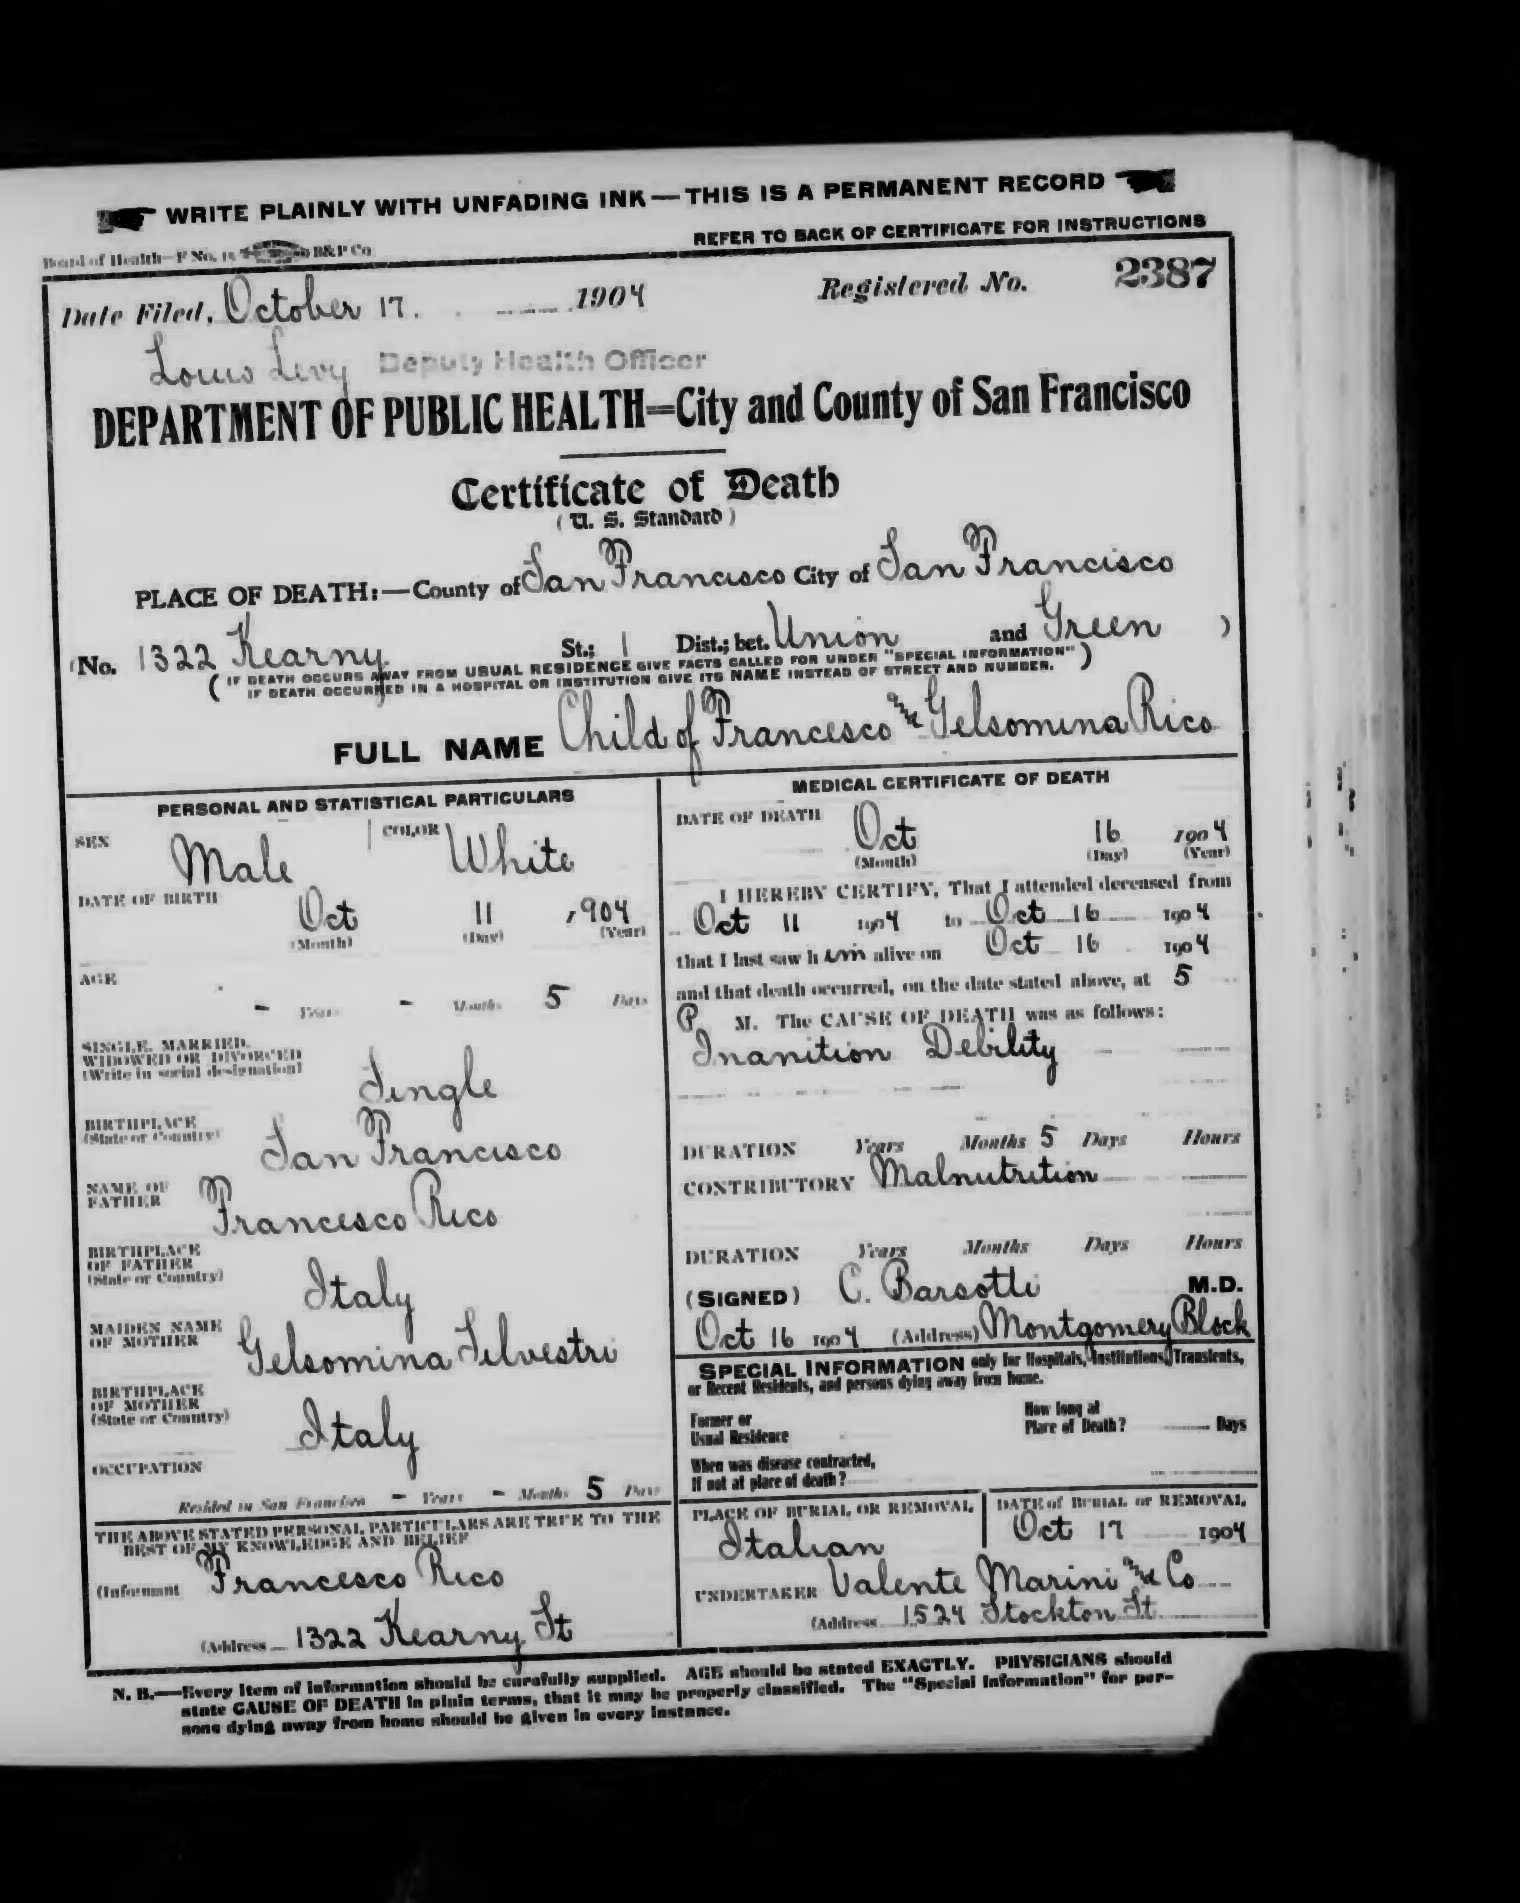 WRITE PLAINLY WITH UNFADING INK — THIS IS A PERMANENT RECORD
REFER TO BACK OF CERTIFICATE FOR INSTRUCTIONS
Board of Health—F No. 15 B&P Co
Date Filed, October 17. 1904 Registered No. 2387
Louis Levy Deputy Health Officer
DEPARTMENT OF PUBLIC HEALTH=City and County of San Francisco
Certificate of Death
(U. S. Standard)
PLACE OF DEATH:—County of San Francisco City of San Francisco
(No. 1322 Kearny St.; 1 Dist.; bet. Union and Green )
( IF DEATH OCCURS AWAY FROM USUAL RESIDENCE GIVE FACTS CALLED FOR UNDER "SPECIAL INFORMATION" )
IF DEATH OCCURRED IN A HOSPITAL OR INSTITUTION GIVE ITS NAME INSTEAD OF STREET AND NUMBER.
FULL NAME Child of Francesco and Gelsomina Rico
PERSONAL AND STATISTICAL PARTICULARS
SEX Male COLOR White
DATE OF BIRTH Oct 11 1904
(Month) (Day) (Year)
AGE
- Years - Months 5 Days
SINGLE, MARRIED,
WIDOWED OR DIVORCED
(Write in social designation) Single
BIRTHPLACE
(State or Country) San Francisco
NAME OF
FATHER Francesco Rico
BIRTHPLACE
OF FATHER
(State or Country) Italy
MAIDEN NAME
OF MOTHER Gelsomina Silvestri
BIRTHPLACE
OF MOTHER
(State or Country) Italy
OCCUPATION
Resided in San Francisco - Years - Months 5 Days
THE ABOVE STATED PERSONAL PARTICULARS ARE TRUE TO THE
BEST OF MY KNOWLEDGE AND BELIEF
(Informant Francesco Rico
(Address 1322 Kearny St
MEDICAL CERTIFICATE OF DEATH
DATE OF DEATH Oct 16 1904
(Month) (Day) (Year)
I HEREBY CERTIFY, That I attended deceased from
Oct 11 1904 to Oct 16 1904
that I last saw h im alive on Oct 16 1904
and that death occurred, on the date stated above, at 5
P M. The CAUSE OF DEATH was as follows:
Inanition Debility
DURATION Years Months 5 Days Hours
CONTRIBUTORY Malnutrition
DURATION Years Months Days Hours
(SIGNED) C. Barsotti M.D.
Oct 16 1904 (Address) Montgomery Block
SPECIAL INFORMATION only for Hospitals, Institutions, Transients,
or Recent Residents, and persons dying away from home.
Former or
Usual Residence
How long at
Place of Death? Days
When was disease contracted,
If not at place of death?
PLACE OF BURIAL OR REMOVAL
Italian
DATE of BURIAL or REMOVAL
Oct 17 1904
UNDERTAKER Valente Marini and Co
(Address 1524 Stockton St
N. B.—Every item of information should be carefully supplied. AGE should be stated EXACTLY. PHYSICIANS should
state CAUSE OF DEATH in plain terms, that it may be properly classified. The "Special Information" for per-
sons dying away from home should be given in every instance.